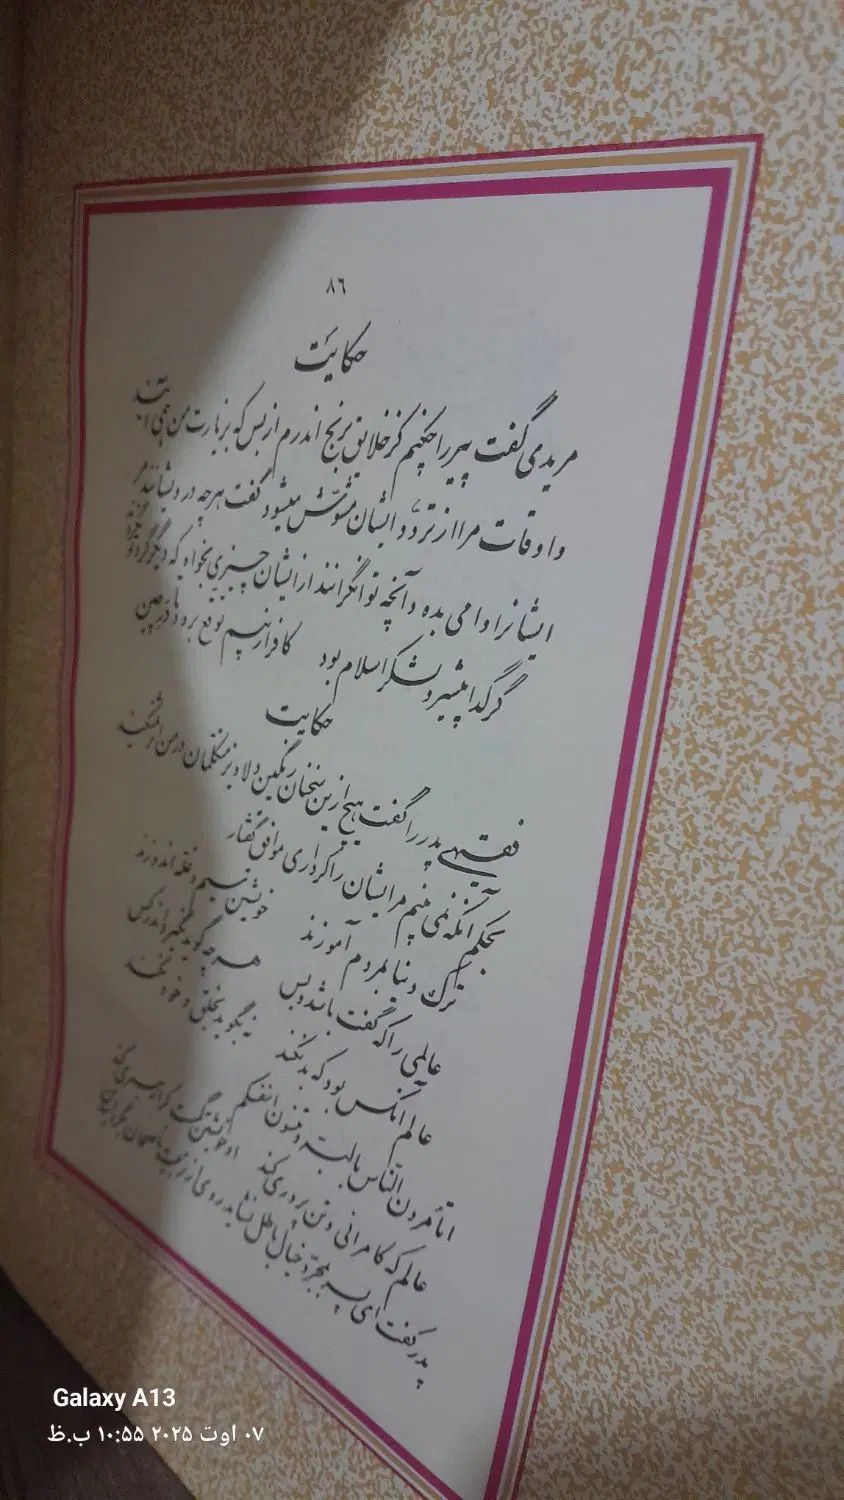 ۸۶
حکایت
مریدی گفت پیر را چکنم کز خلایق برنج اندرم از بس که بزیارت من همی آیند
و اوقات مرا از تردد ایشان مشوش میشود گفت هر چه درویشانند مر
ایشانرا وامی بده و آنچه توانگرانند از ایشان چیزی بخواه که دیگر گرد تو نگردند
گر گدا پیشرو لشکر اسلام بود کافر از بیم توقع برود تا در چین
حکایت
فقیهی پدر را گفت هیچ ازین سخنان رنگین دلاویز متکلمان در من اثر نمیکند
بحکم آنکه نمی بینم مر ایشان را کرداری موافق گفتار
ترک دنیا بمردم آموزند خویشتن سیم و غله اندوزند
عالمی را که گفت باشد و بس هر چه گوید نگیرد اندر کس
عالم آنکس بود که بد نکند نه بگوید بخلق و خود نکند
اتأمرون الناس بالبر و تنسون انفسکم
عالم که کامرانی و تن پروری کند او خویشتن گمست کرا رهبری کند
پدر گفت ای پسر بمجرد خیال باطل نشاید روی از تربیت ناصحان بگردانیدن
Galaxy A13
۰۷ اوت ۲۰۲۵ ۱۰:۵۵ ب.ظ